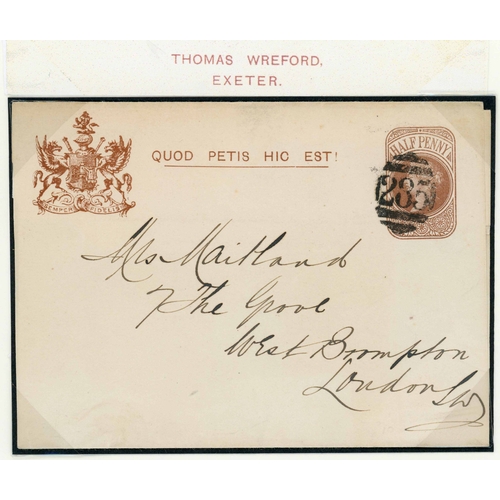 THOMAS WREFORD,
EXETER.
QUOD PETIS HIC EST!
HALF PENNY
285
SEMPER FIDELIS
Mrs Maitland
7 The Grove
West Brompton
London SW